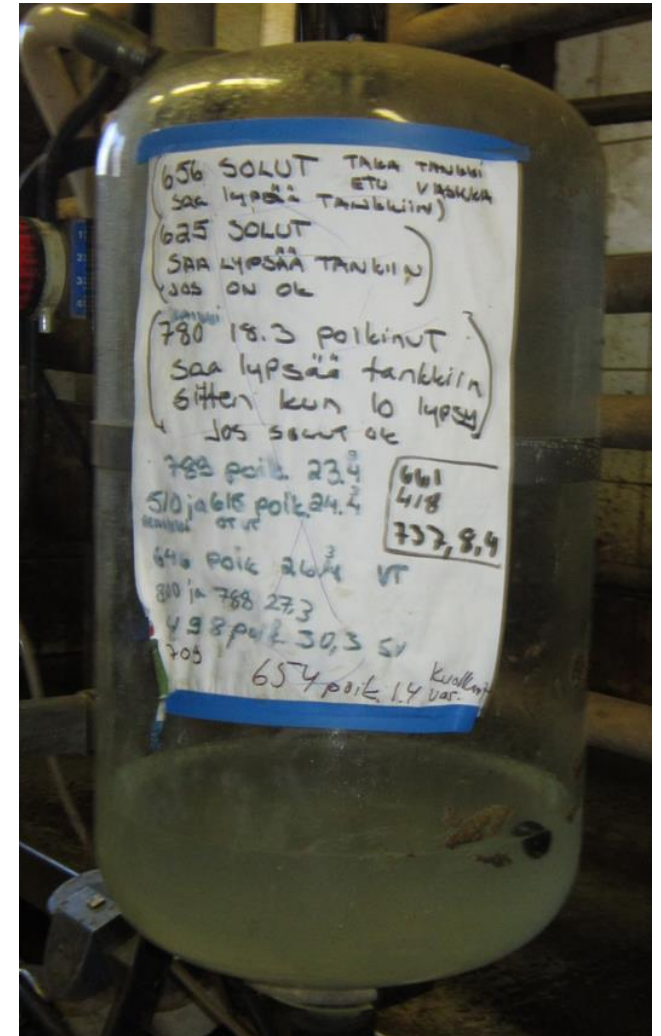 (656 SOLUT TAKA TANKKI
ETU VASKKA
SAA LYPSÄÄ TANKKIIN)
(625 SOLUT
SAA LYPSÄÄ TANKIIN
JOS ON OK)
(780 18.3 poikinut
saa lypsää tankkiin
sitten kun 10 lypsy)
JOS SOLUT OK
789 poik. 23.3
510 ja 618 poik. 24.3
646 poik 26.3 VT
800 ja 788 27.3
498 poik 30,3 SV
709
654 poik. 1.4 vas.
661
418
737, 8, 4